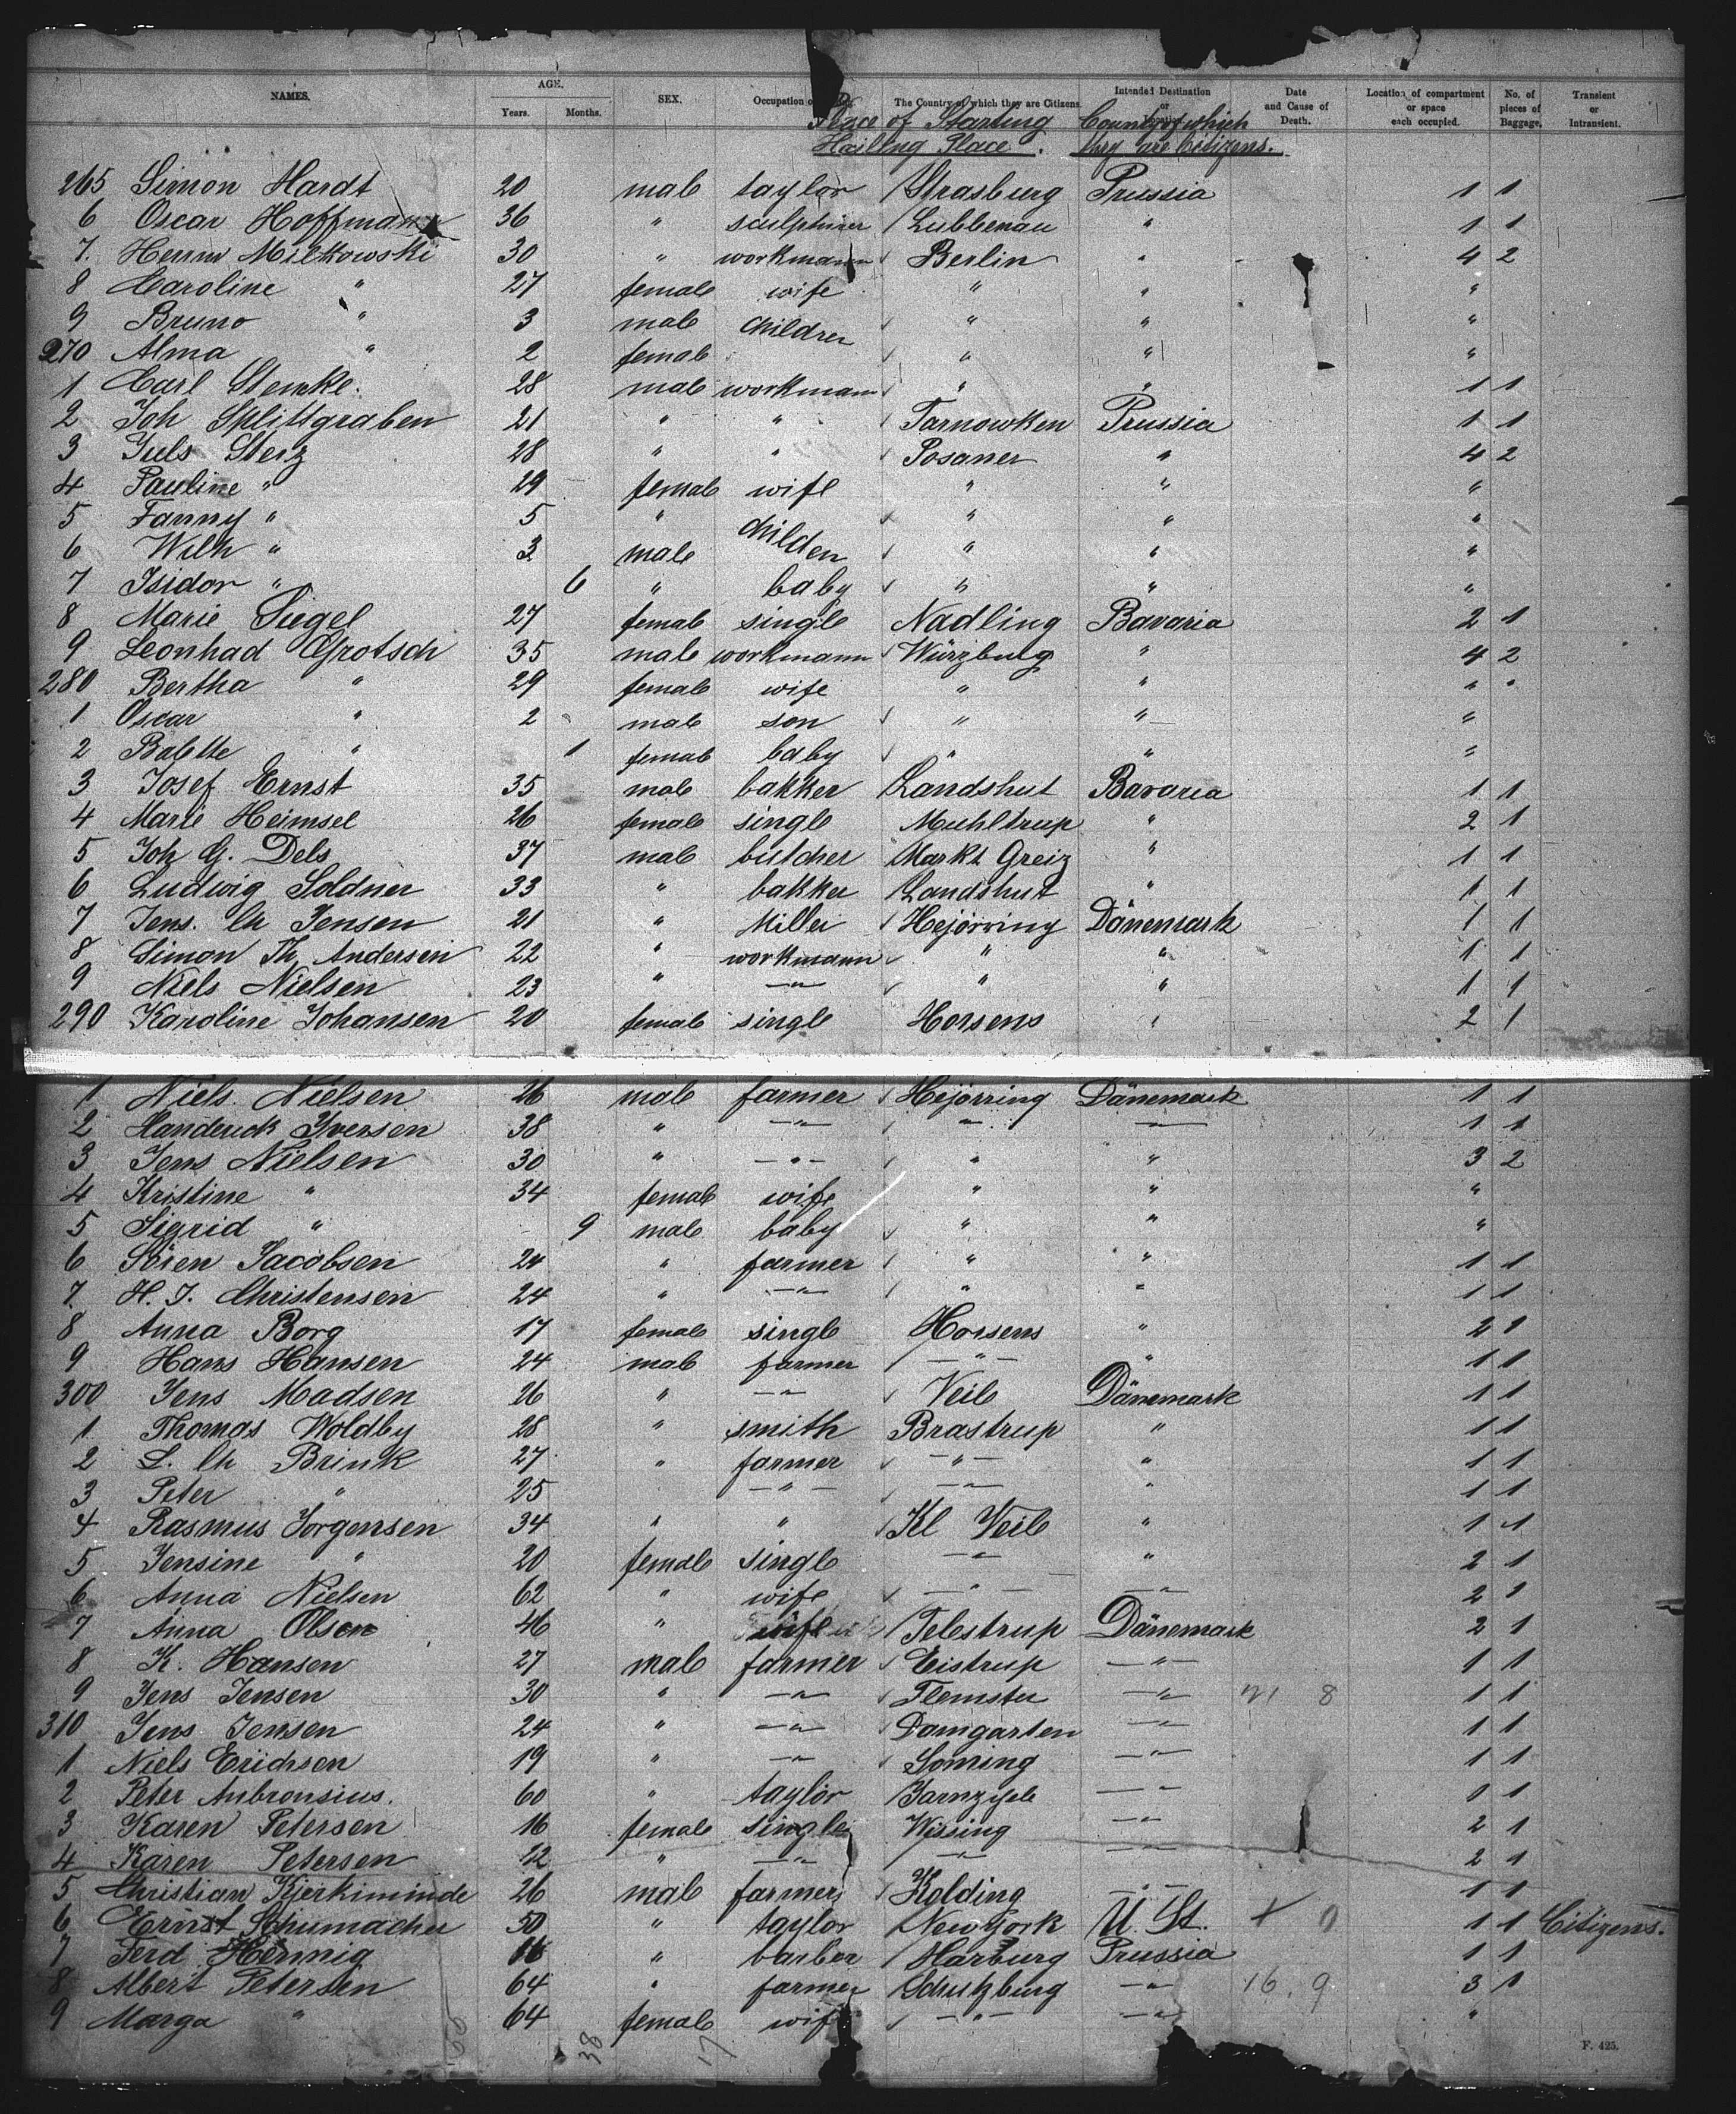 NAMES. AGE. Years. Months. SEX. Occupation The Country of which they are Citizens. Intended Destination or Date and Cause of Death. Location of compartment or space each occupied. No. of pieces of Baggage. Transient or Intransient.
Place of Starting Country of which
Hailing Place. they are Citizens.
265 Simon Hardt 20 male taylor Strasburg Prussia 1 1
6 Oscar Hoffmann 36 " Lubbenau " 1 1
7. Milkowski 30 " workmann Berlin " 4 2
8 Caroline " 27 female wife " " "
9 Bruno " 3 male children " " "
270 Alma " 2 female " " "
1 Carl Stemke. 28 male workmann " " 1 1
2 Joh Splittgraben 21 " " Tarnowken Prussia 1 1
3 Juls Sterz 28 " " Posaner " 4 2
4 Pauline " 29 female wife " " "
5 Fanny " 5 " children " " "
6 Wilh " 3 male " " "
7 Isidor " 6 " baby " " "
8 Marie Siegel 27 female single Nadling Bavaria 2 1
9 Leonhad Grotsch 35 male workmann Würzburg " 4 2
280 Bertha " 29 female wife " " " "
1 Oscar " 2 male son " " "
2 Babette " 1 female baby " " "
3 Josef Ernst 35 male bakker Landshut Bavaria 1 1
4 Marie Heimsel 26 female single Muhltrup " 2 1
5 Joh G. Dels 37 male butcher Markt Greiz " 1 1
6 Ludwig Soldner 33 " bakker Landshut " 1 1
7 Jens. Ch Jensen 21 " Miller Hejörring Dänemark 1 1
8 Simon Th. Andersen 22 " workmann " " 1 1
9 Niels Nielsen 23 " —"— " " 1 1
290 Karoline Johansen 20 female single Horsens " 2 1
1 Niels Nielsen 26 male farmer Hejörring Dänemark 1 1
2 Handerick Iversen 38 " —"— —"— —"— 1 1
3 Jens Nielsen 30 " —"— " " 3 2
4 Kristine " 34 female wife " " "
5 Sigrid " 9 male baby " " "
6 Sören Jacobsen 24 " farmer " " 1 1
7. H. J. Christensen 24 " —"— " " 1 1
8 Anna Borg 17 female single Horsens " 2 1
9 Hans Hansen 24 male farmer —"— " 1 1
300 Jens Madsen 26 " —"— Veile Dänemark 1 1
1 Thomas Woldby 28 " smith Brastrup " 1 1
2 L. Ch Brink 27 " farmer —"— " 1 1
3 Peter " 25 —"— —"— " 1 1
4 Rasmus Jorgensen 34 " " Kl Veile " 1 1
5 Jensine " 20 female single —"— " 2 1
6 Anna Nielsen 62 " wife —"— —"— 2 1
7 Anna Olsen 46 " wife Telestrup Dänemark 2 1
8 K. Hansen 27 male farmer Eistrup —"— 1 1
9 Jens Jensen 30 " —"— —"— 8 1 1
310 Jens Jensen 24 " —"— Damgarten —"— 1 1
1 Niels Erichsen 19 " —"— Soming —"— 1 1
2 Peter Anbronsius. 60 " taylor —"— 1 1
3 Karen Petersen 16 female single Wissing —"— 2 1
4 Karen Petersen " —"— —"— —"— 2 1
5 Christian Kjerkiminde 26 male farmer Kolding —"— 1 1
6 Ernst Schumacher 50 " taylor New York U. St. + 0 1 1 Citizens.
7 Ferd Hennig " barber Harburg Prussia 1 1
8 Albert Petersen 64 " farmer —"— 16. 9 3 1
9 Marga " 64 female wife —"— —"— "
38 17
F. 425.